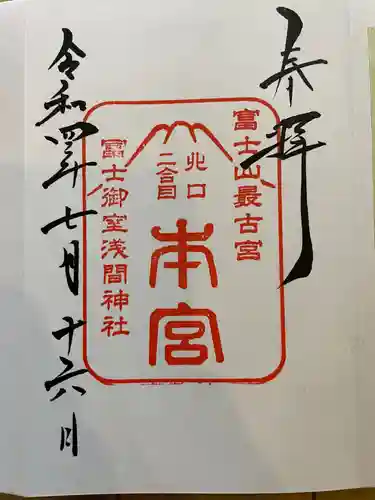 奉拝
富士山最古宮
北口
二合目
本宮
冨士御室浅間神社
令和四年七月十六日